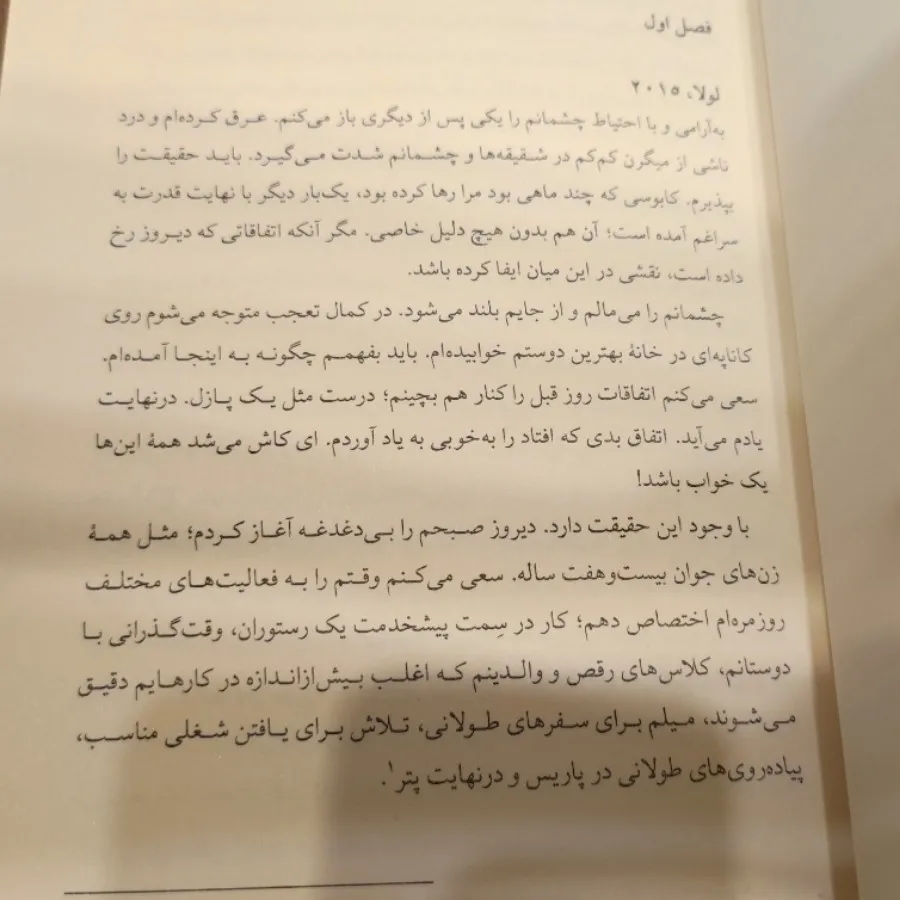 فصل اول
لولا، ۲۰۱۵
به‌آرامی و با احتیاط چشمانم را یکی پس از دیگری باز می‌کنم. عرق کرده‌ام و درد
ناشی از میگرن کم‌کم در شقیقه‌ها و چشمانم شدت می‌گیرد. باید حقیقت را
بپذیرم. کابوسی که چند ماهی بود مرا رها کرده بود، یک‌بار دیگر با نهایت قدرت به
سراغم آمده است؛ آن هم بدون هیچ دلیل خاصی. مگر آنکه اتفاقاتی که دیروز رخ
داده است، نقشی در این میان ایفا کرده باشد.
چشمانم را می‌مالم و از جایم بلند می‌شود. در کمال تعجب متوجه می‌شوم روی
کاناپه‌ای در خانهٔ بهترین دوستم خوابیده‌ام. باید بفهمم چگونه به اینجا آمده‌ام.
سعی می‌کنم اتفاقات روز قبل را کنار هم بچینم؛ درست مثل یک پازل. درنهایت
یادم می‌آید. اتفاق بدی که افتاد را به‌خوبی به یاد آوردم. ای کاش می‌شد همهٔ این‌ها
یک خواب باشد!
با وجود این حقیقت دارد. دیروز صبحم را بی‌دغدغه آغاز کردم؛ مثل همهٔ
زن‌های جوان بیست‌وهفت ساله. سعی می‌کنم وقتم را به فعالیت‌های مختلف
روزمره‌ام اختصاص دهم؛ کار در سِمت پیشخدمت یک رستوران، وقت‌گذرانی با
دوستانم، کلاس‌های رقص و والدینم که اغلب بیش‌ازاندازه در کارهایم دقیق
می‌شوند، میلم برای سفرهای طولانی، تلاش برای یافتن شغلی مناسب،
پیاده‌روی‌های طولانی در پاریس و درنهایت پتر۱.